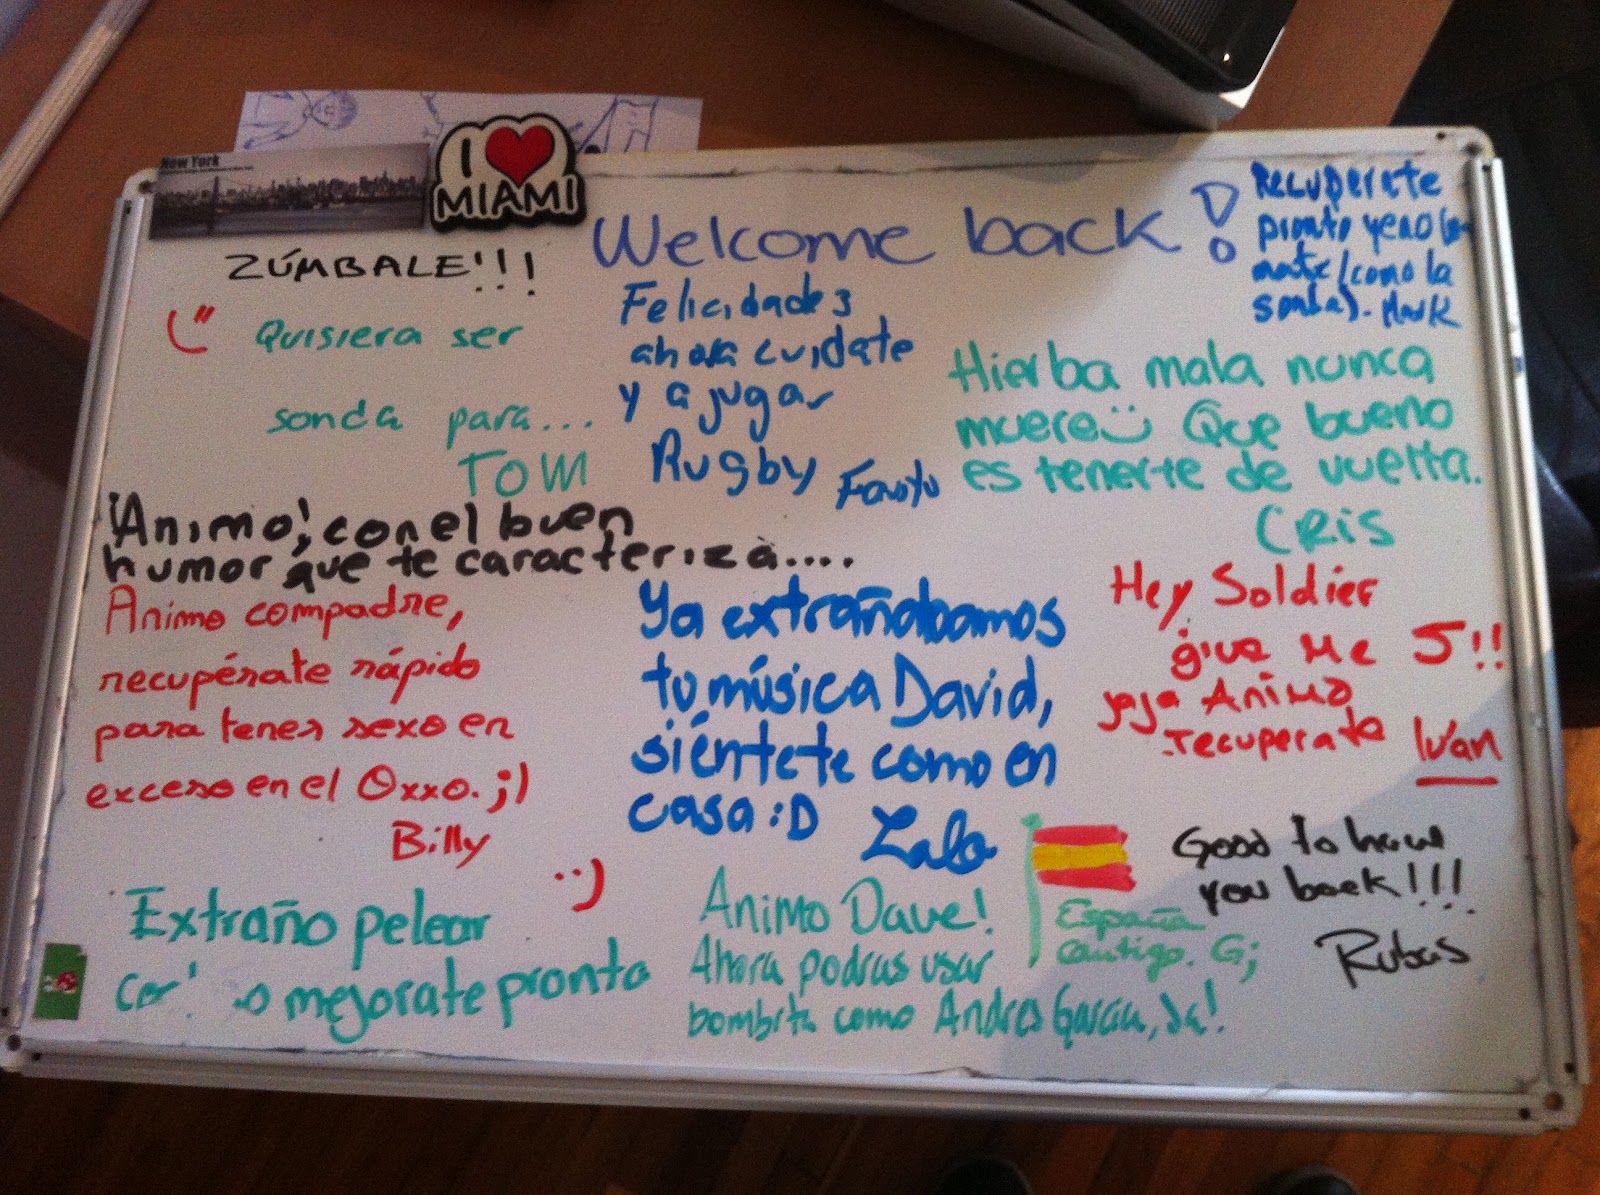 New York
I
MIAMI
Welcome back!
ZÚMBALE!!!
Quisiera ser
sonda para...
TOM
Felicidades
ahora cuidate
y a jugar
Rugby Fausto
Recuperate
pronto
como la
sonda). Mark
Hierba mala nunca
muere Que bueno
es tenerte de vuelta.
CRIS
¡Animo! con el buen
humor que te caracteriza....
Animo compadre,
recupérate rápido
para tener sexo en
exceso en el Oxxo. ;)
Billy
Ya extrañabamos
tu música David,
siéntete como en
casa :D Lalo
Hey Soldier
give Me 5!!
jaja Animo
recuperate Ivan
Extraño pelear
mejorate pronto
Animo Dave!
Ahora podras usar
bombita como Andres Garcia, Ja!
España
contigo. G;
Good to have
you back!!!